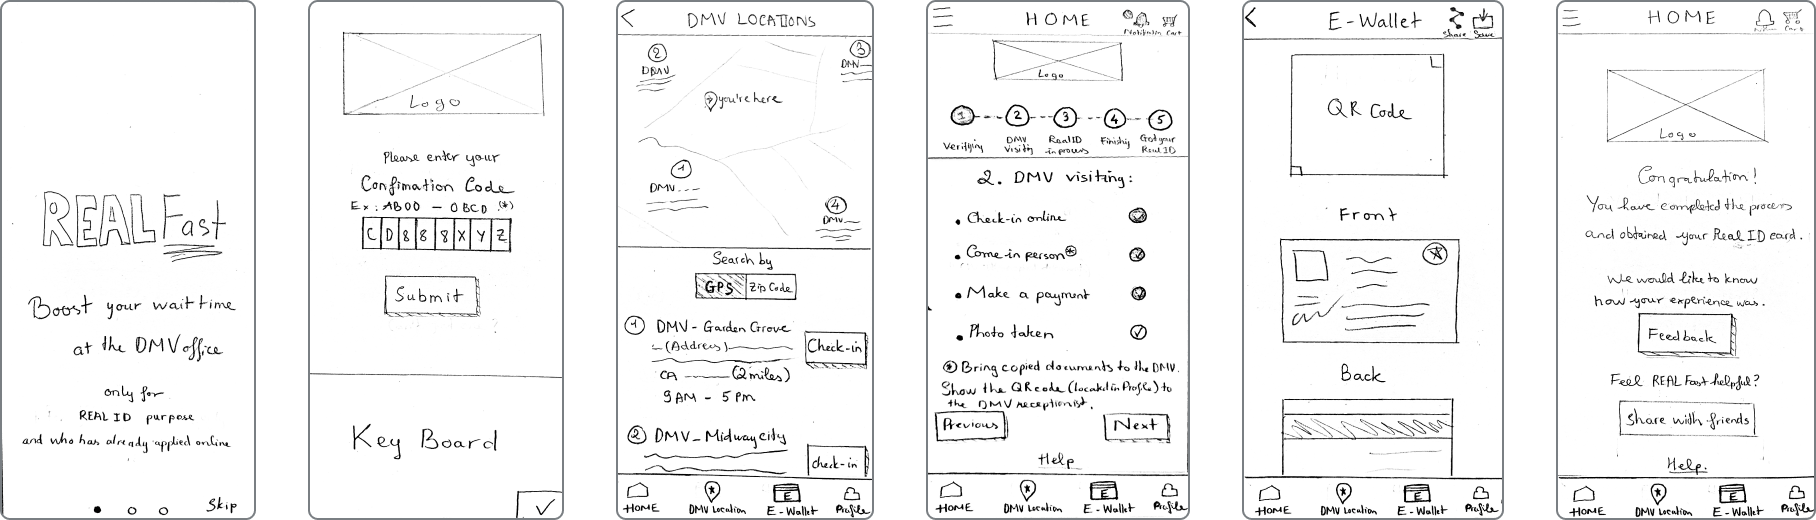 REAL Fast
Boost your wait time
at the DMV office
only for
REAL ID purpose
and who has already applied online
Skip
Logo
Please enter your
Confimation Code
Ex: AB00 - 0BCD (*)
C D 8 8 8 X Y Z
Submit
Key Board
DMV LOCATIONS
2
DMV
3
DMV
you're here
1
DMV
4
DMV
Search by
GPS Zip Code
1 DMV - Garden Grove
(Address)
Check-in
CA (2 miles)
9 AM - 5 PM
2 DMV - Midway city
check-in
HOME DMV Location E - Wallet Profile
HOME
Notification Cart
Logo
1 2 3 4 5
Verifying
DMV Visiting
Real ID in process
Finishing
Got your Real ID
2. DMV visiting:
Check-in online
Come in person *
Make a payment
Photo taken
* Bring copied documents to the DMV.
Show the QR code (located in Profile) to
the DMV receptionist.
Previous Next
Help
HOME DMV Location E - Wallet Profile
E - Wallet
Share Save
QR Code
Front
Back
HOME DMV Location E - Wallet Profile
HOME
Cart
Logo
Congratulation!
You have completed the process
and obtained your Real ID card.
We would like to know
how your experience was.
Feedback
Feel REAL Fast helpful?
Share with friends
Help.
HOME DMV Location E - Wallet Profile